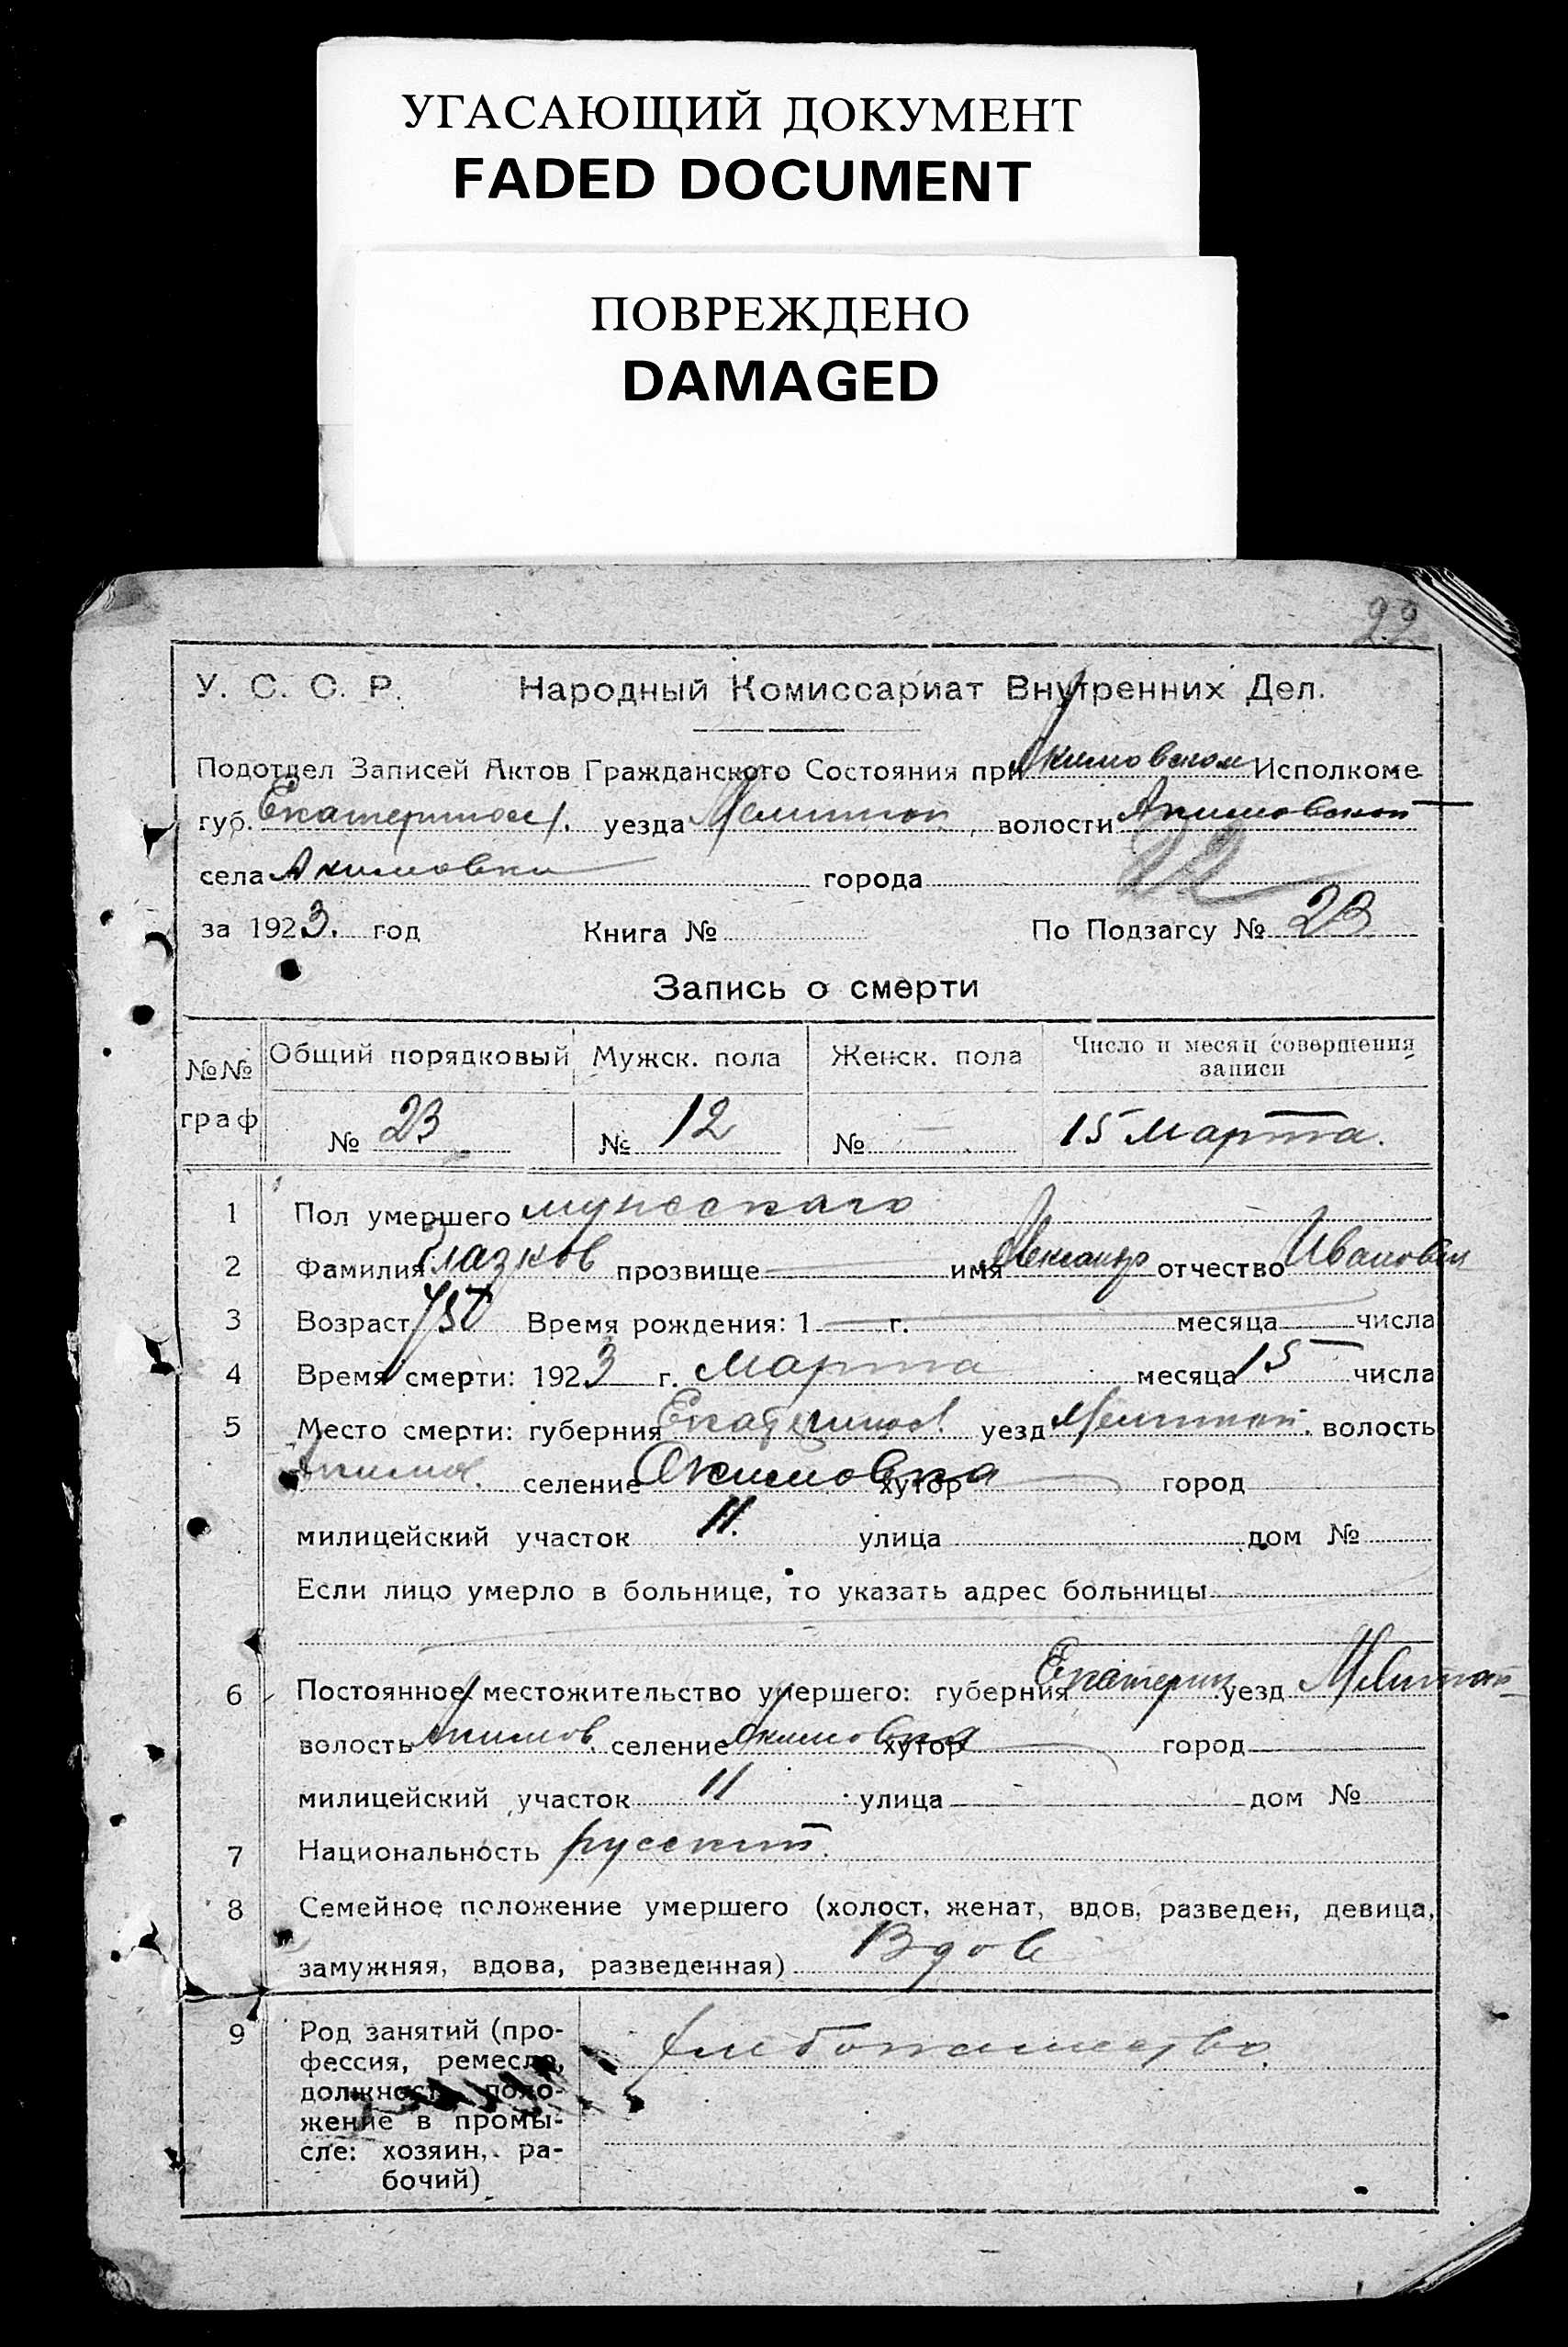 УГАСАЮЩИЙ ДОКУМЕНТ
FADED DOCUMENT
ПОВРЕЖДЕНО
DAMAGED
22
У. С. С. Р. Народный Комиссариат Внутренних Дел.
Подотдел Записей Актов Гражданского Состояния при Акимовском Исполкоме
губ. Екатериносл. уезда Мелитоп. волости Акимовской
села Акимовки города
22
за 1923. год Книга № По Подзагсу № 23
Запись о смерти
№№ граф Общий порядковый Мужск. пола Женск. пола Число и месяц совершения записи
№ 23 № 12 № — 15 Марта.
1 Пол умершего мужескаго
2 Фамилия Глазков прозвище — имя Александр отчество Иванович
3 Возраст Время рождения: 1 г. месяца числа
4 Время смерти: 1923 г. Марта месяца 15 числа
5 Место смерти: губерния Екатеринос. уезд Мелитоп. волость
Акимов. селение Акимовка хутор — город
милицейский участок 11. улица дом №
Если лицо умерло в больнице, то указать адрес больницы
6 Постоянное местожительство умершего: губерния Екатерин. уезд Мелитоп
волость Акимов. селение Акимовка хутор — город
милицейский участок 11 улица дом №
7 Национальность русский.
8 Семейное положение умершего (холост, женат, вдов, разведен, девица,
замужняя, вдова, разведенная) Вдов
9 Род занятий (про-
фессия, ремесло, хлебопашество.
должность, поло-
жение в промы-
сле: хозяин, ра-
бочий)